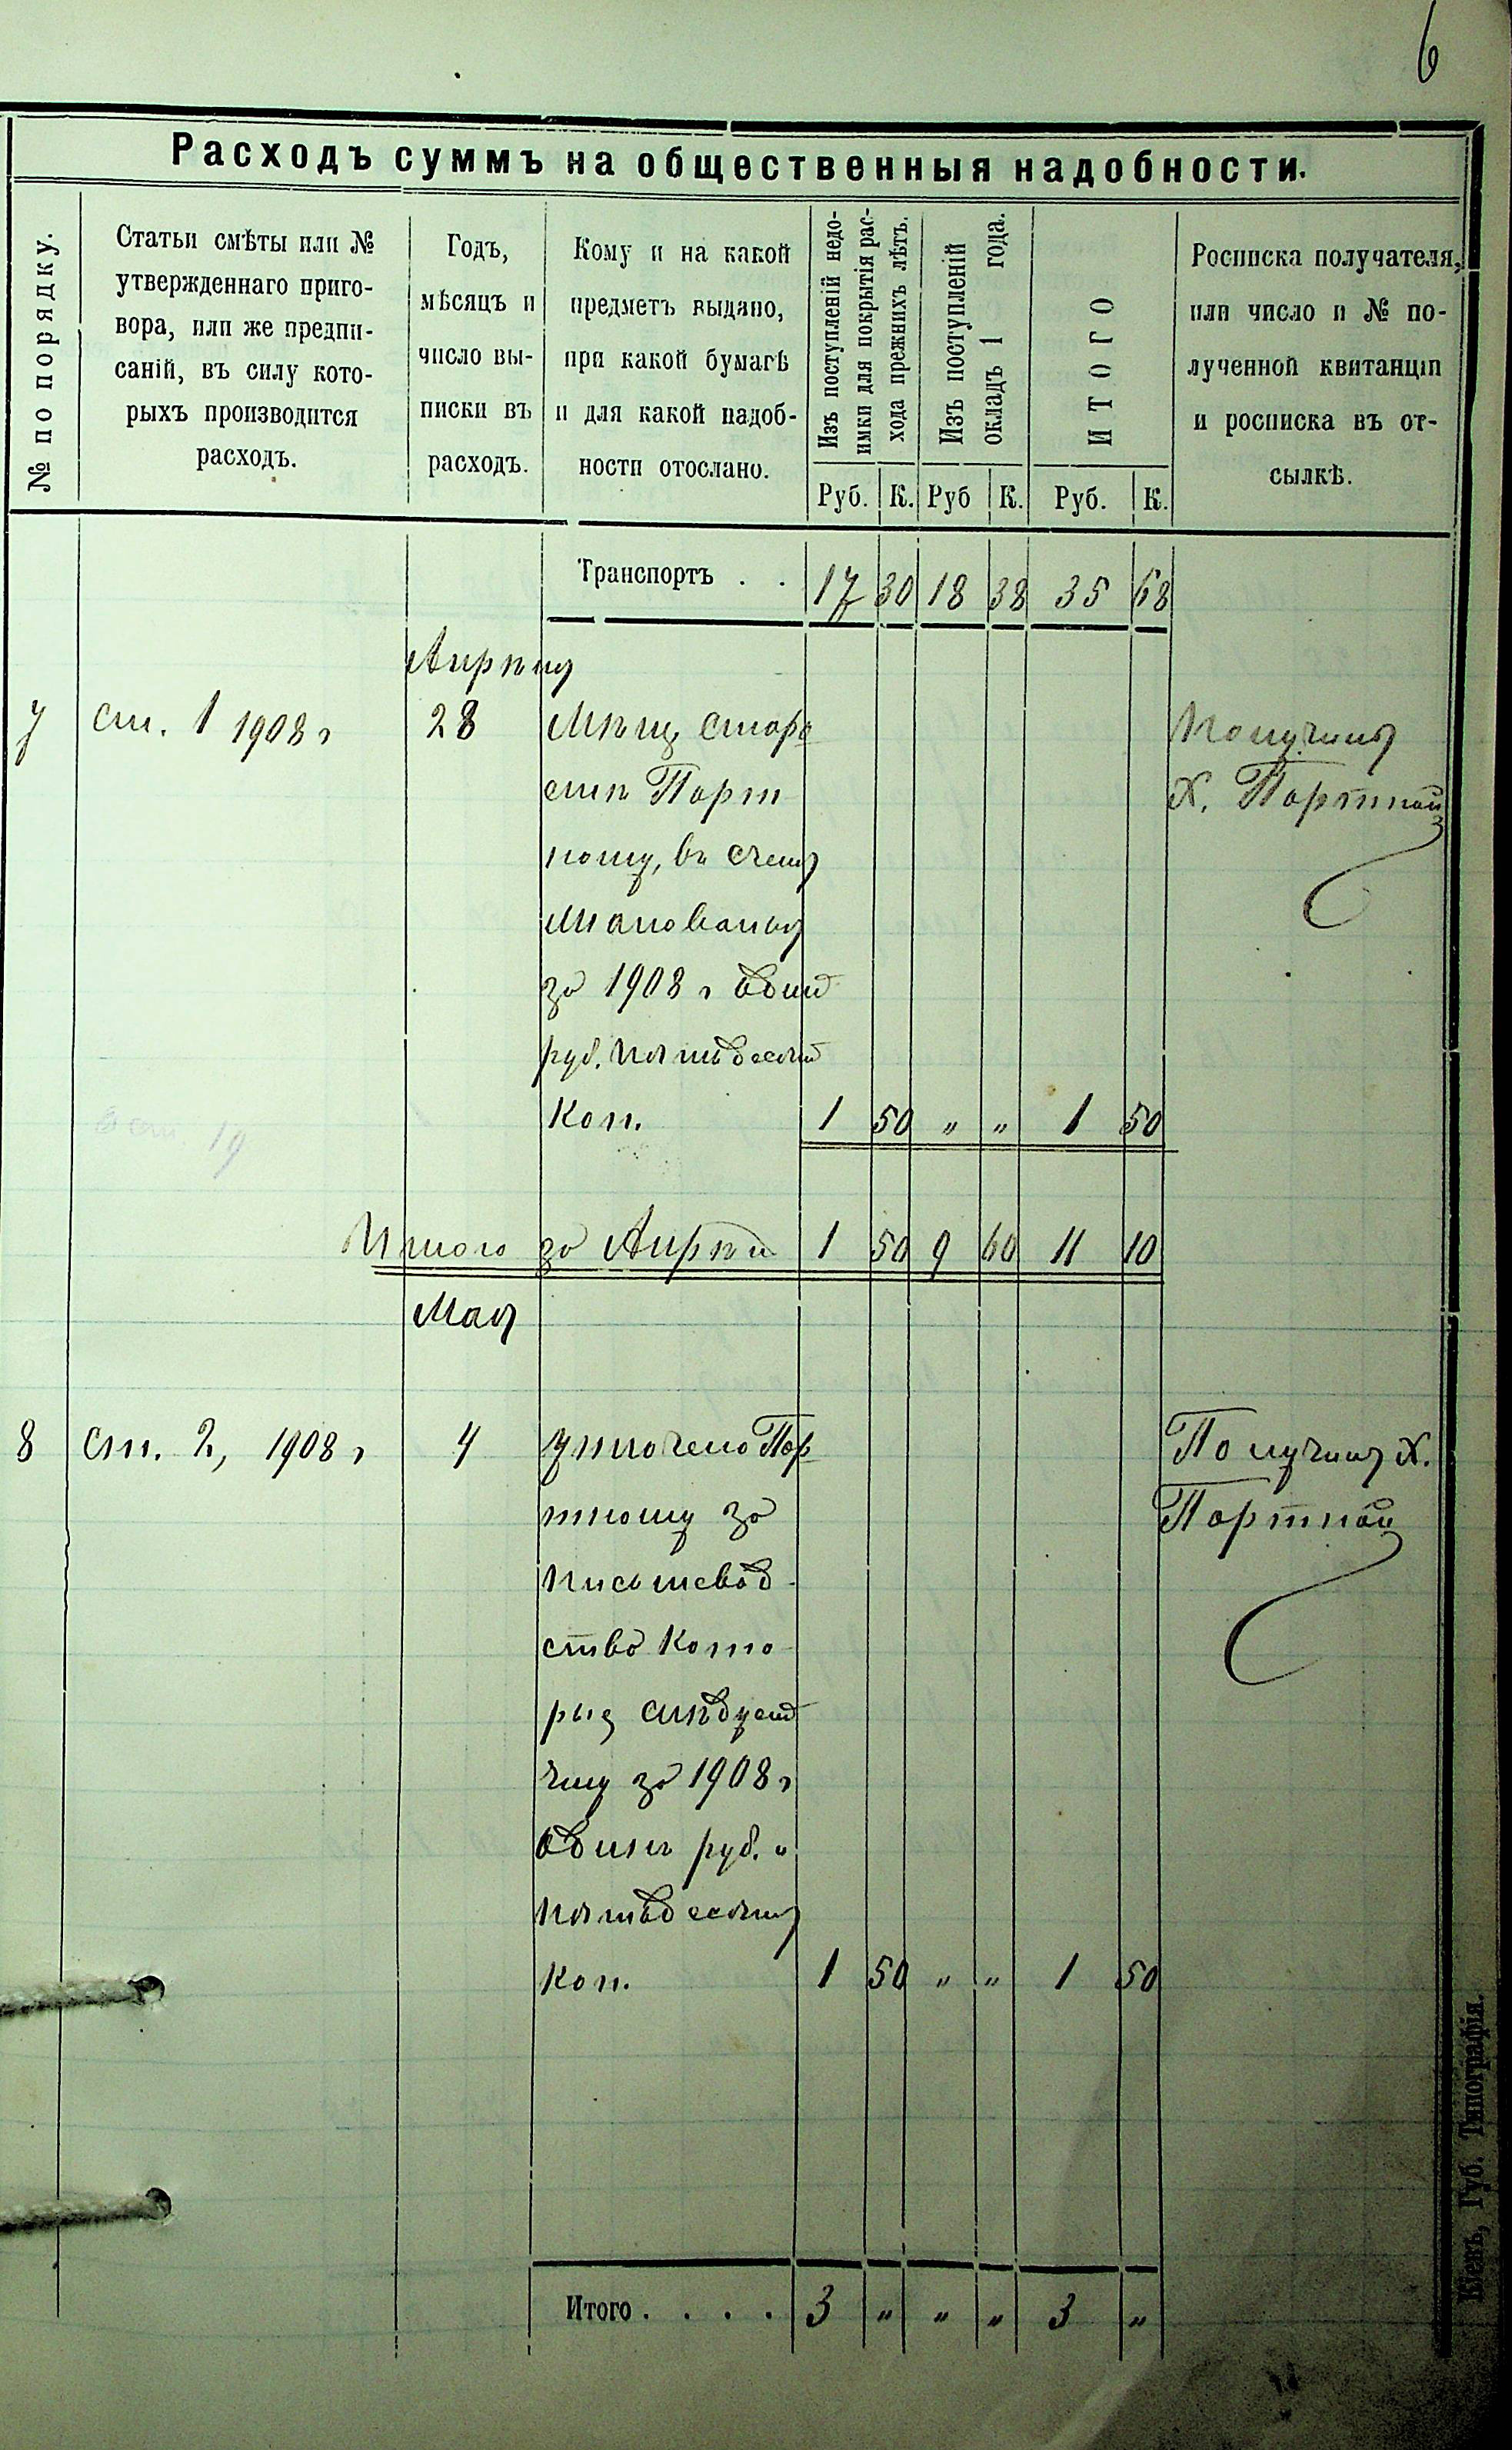 6
Расходъ суммъ на общественныя надобности.
№ по порядку.
Статьи смѣты или №
утвержденнаго приго-
вора, или же предпи-
саній, въ силу кото-
рыхъ производится
расходъ.
Годъ,
мѣсяцъ и
число вы-
писки въ
расходъ.
Кому и на какой
предметъ выдано,
при какой бумагѣ
и для какой надоб-
ности отослано.
Изъ поступленій недо-
имки для покрытія рас-
хода прежнихъ лѣтъ.
Изъ поступленій
окладъ 1 года.
ИТОГО
Росписка получателя,
или число и № по-
лученной квитанціи
и росписка въ от-
сылкѣ.
Руб. К. Руб К. Руб. К.
Транспортъ . . 17 30 18 38 35 68
Апрѣля
7 ст. 1 1908 г 28 Мѣщ. Старо
стѣ Порт
ному, въ счетъ
жалованья
за 1908 г один
руб. пятьдесят
коп. 1 50 " " 1 50
Получилъ
Х. Портной
Итого за Апрѣль 1 50 9 60 11 10
Мая
8 ст. 2, 1908 г 4 уплачено Пор
тному за
письмовод
ство кото
рыя слѣдует
ему за 1908 г
один руб. и
пятьдесятъ
коп. 1 50 " " 1 50
Получилъ Х.
Портной
Итого . . . . 3 " " " 3 "
Кіевъ, Губ. Типографія.